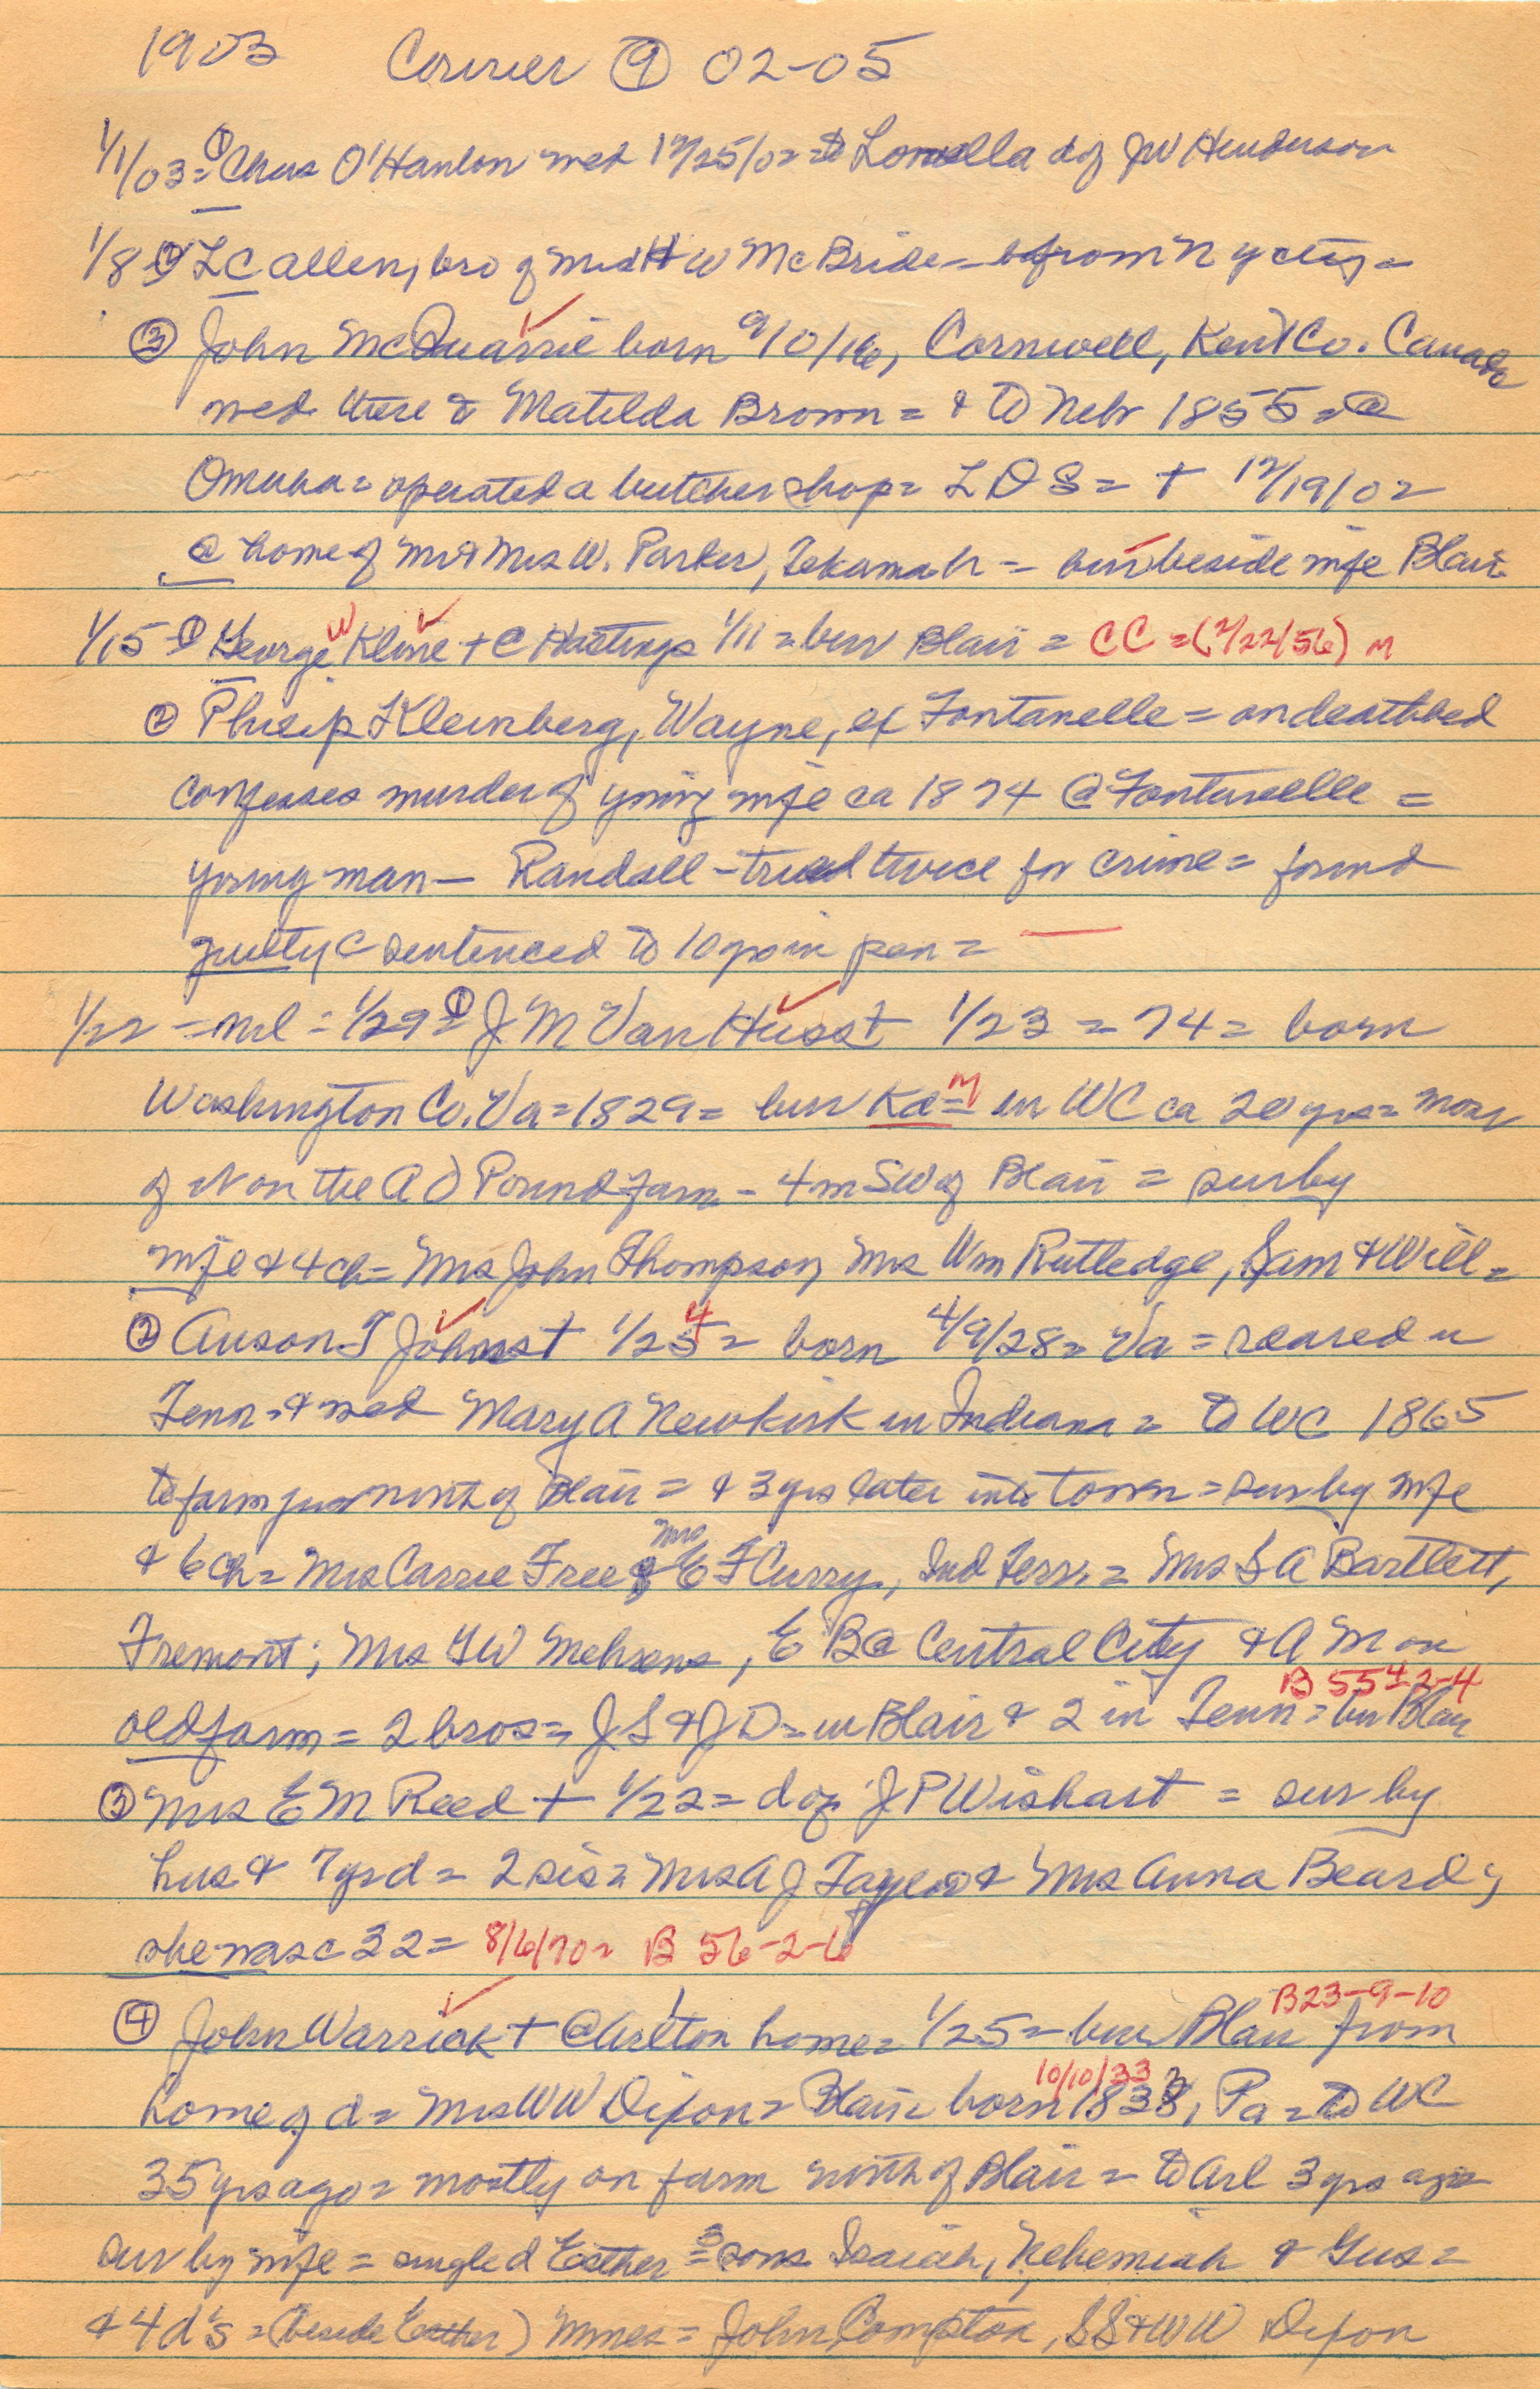 1903 Courier ⑨ 02-05
1/1/03 = ① Chas O'Hanlon med 12/25/02 = to Louella d of JW Henderson
1/8 ① L C Allen, bro of Mrs H W McBride = from N Y city =
③ John McQuarrie born 9/10/16, Cornwell, Kent Co. Canada
med there to Matilda Brown = & to Nebr 1855 = @
Omaha = operated a butcher shop = L D S = + 12/19/02
@ home of Mr & Mrs W. Parker, Tekamah = bur beside wife Blair
1/15 ① George W Kline + @ Hastings 1/11 = bur Blair = CC = (2/22/56) M
② Philip Kleinberg, Wayne, ex Fontanelle = on deathbed
confesses murder of young wife ca 1874 @ Fontanelle =
young man — Randall - tried twice for crime = found
guilty & sentenced to 10 yrs in pen =
1/22 = nil = 1/29 = ① J M Van Huss + 1/23 = 74 = born
Washington Co. Va = 1829 = bur Ka = M in WC ca 20 yrs = most
of it on the A D Pound farm - 4 m SW of Blair = sur by
wife & 4 ch = Mrs John Thompson, Mrs Wm Rutledge, Sam & Will =
② Anson T Johns + 1/25 4 = born 4/9/28 = Va = reared in
Tenn = & med Mary A Newkirk in Indiana = to WC 1865
to farm just north of Blair = & 3 yrs later into town = sur by wife
& 6 ch = Mrs Carrie Free & Mrs E F Curry, Ind Terr. = Mrs S A Bartlett,
Fremont; Mrs G W Mehrens, E B @ Central City & A M on
B 55 4-2-4
old farm = 2 bros = J S & J D = in Blair & 2 in Tenn = bur Blair
③ Mrs E M Reed + 1/22 = d of J P Wishart = sur by
hus & 7 yr d = 2 sis = Mrs A J Taylor & Mrs Anna Beard;
she was c 32 = 8/6/70 = B 56-2-6
B 23-9-10
④ John Warrick + @ Arlton home = 1/25 = bur Blair from
10/10/33
home of d = Mrs WW Dixon = Blair = born 1833, Pa = to WC
35 yrs ago = mostly on farm north of Blair = to Arl 3 yrs ago
sur by wife = single d Esther = 3 sons Isaiah, Nehemiah & Gus =
& 4 d's = (beside Esther) Mmes = John Compton, S S & WW Dixon